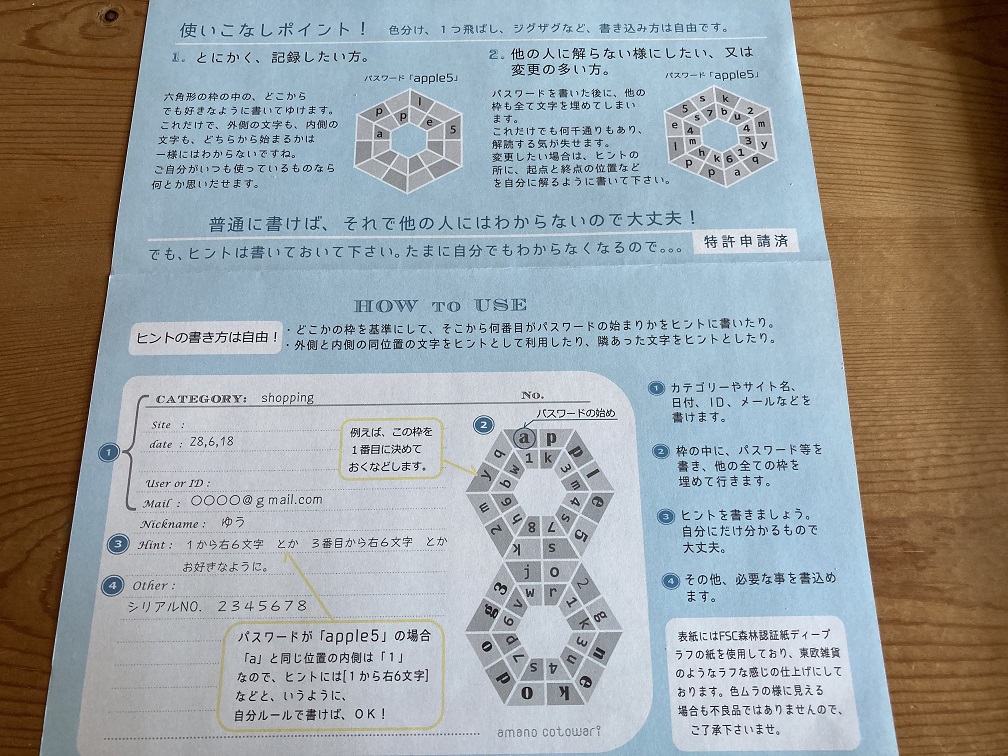 使いこなしポイント！ 色分け、１つ飛ばし、ジグザグなど、書き込み方は自由です。
1. とにかく、記録したい方。
パスワード「apple5」
六角形の枠の中の、どこから
でも好きなように書いてゆけます。
これだけで、外側の文字も、内側の
文字も、どちらから始まるかは
一様にはわからないですね。
ご自分がいつも使っているものなら
何とか思いだせます。
p l
a p e 5
2. 他の人に解らない様にしたい、又は
変更の多い方。
パスワード「apple5」
パスワードを書いた後に、他の
枠も全て文字を埋めてしまい
ます。
これだけでも何千通りもあり、
解読する気が失せます。
変更したい場合は、ヒントの
所に、起点と終点の位置など
を自分に解るように書いて下さい。
5 s k 2
e s 7 b u m
4 4
l m 3 y
h k 6 1
p p a q
普通に書けば、それで他の人にはわからないので大丈夫！
でも、ヒントは書いておいて下さい。たまに自分でもわからなくなるので。。。
特許申請済
HOW TO USE
ヒントの書き方は自由！
・どこかの枠を基準にして、そこから何番目がパスワードの始まりかをヒントに書いたり。
・外側と内側の同位置の文字をヒントとして利用したり、隣あった文字をヒントとしたり。
1
CATEGORY: shopping
No.
Site :
date : 28,6,18
User or ID :
Mail : 〇〇〇〇@gmail.com
Nickname : ゆう
3 Hint : １から右６文字 とか ３番目から右６文字 とか
お好きなように。
4 Other :
シリアルNO. ２３４５６７８
例えば、この枠を
１番目に決めて
おくなどします。
パスワードの始め
2
a p
q p
y w 1 k 3 l
b m e
6 4
2 h s 5
m 8 7 5
k s
j o
g 3 w r 2 g
v 1
6 k
o 6 3 n
7 u
d s 4 e
o k
パスワードが「apple5」の場合
「a」と同じ位置の内側は「１」
なので、ヒントには[１から右６文字]
などと、いうように、
自分ルールで書けば、ＯＫ！
amano cotowari
1 カテゴリーやサイト名、
日付、ＩＤ、メールなどを
書けます。
2 枠の中に、パスワード等を
書き、他の全ての枠を
埋めて行きます。
3 ヒントを書きましょう。
自分にだけ分かるもので
大丈夫。
4 その他、必要な事を書込め
ます。
表紙にはFSC森林認証紙ディープ
ラフの紙を使用しており、東欧雑貨
のようなラフな感じの仕上げにして
おります。色ムラの様に見える
場合も不良品ではありませんので、
ご了承下さいませ。